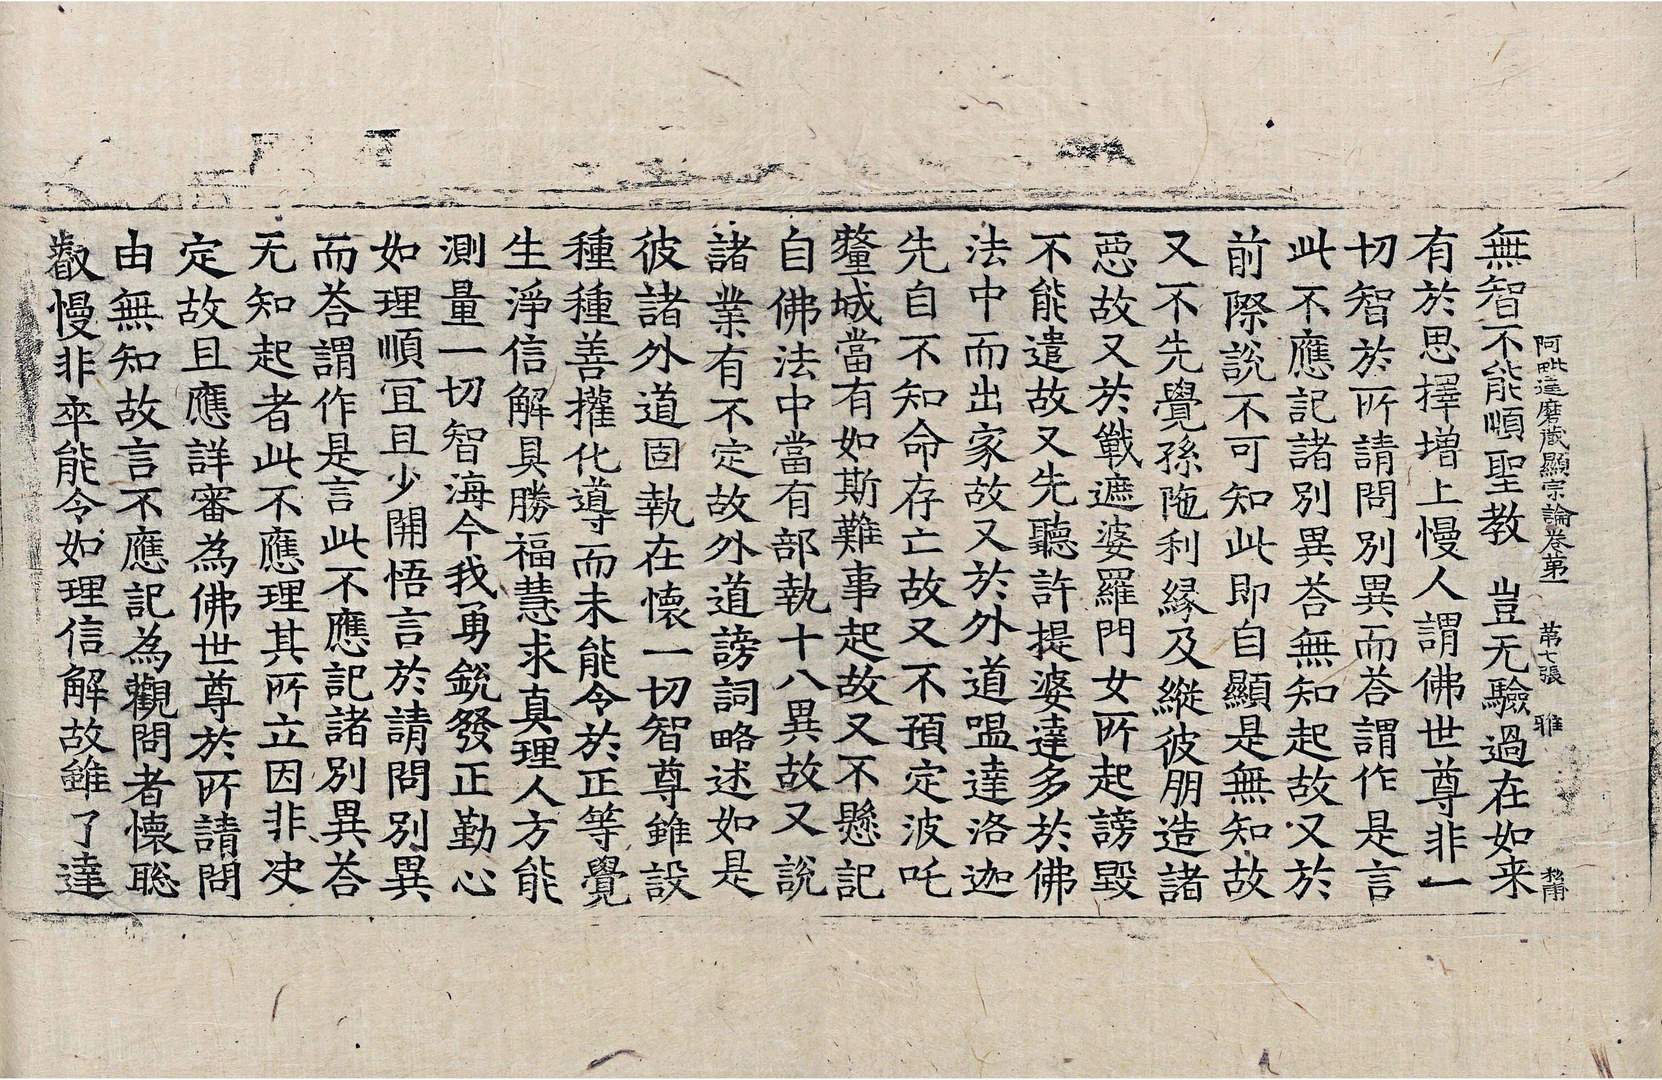 阿毗達磨藏顯宗論卷第一 第七張 雅
無智不能順聖教 豈无驗過在如来
有於思擇增上慢人謂佛世尊非一
切智於所請問別異而荅謂作是言
此不應記諸別異荅無知起故又於
前際說不可知此即自顯是無知故
又不先覺孫陁利緣及縱彼朋造諸
惡故又於戰遮婆羅門女所起謗毀
不能遣故又先聽許提婆達多於佛
法中而出家故又於外道嗢達洛迦
先自不知命存亡故又不預定波吒
釐城當有如斯難事起故又不懸記
自佛法中當有部執十八異故又說
諸業有不定故外道謗詞略述如是
彼諸外道固執在懷一切智尊雖設
種種善攉化導而未能令於正等覺
生淨信解具勝福慧求真理人方能
測量一切智海今我勇銳發正勤心
如理順冝且少開悟言於請問別異
而荅謂作是言此不應記諸別異荅
无知起者此不應理其所立因非决
定故且應詳審為佛世尊於所請問
由無知故言不應記為觀問者懷聡
叡慢非卒能令如理信解故雖了達